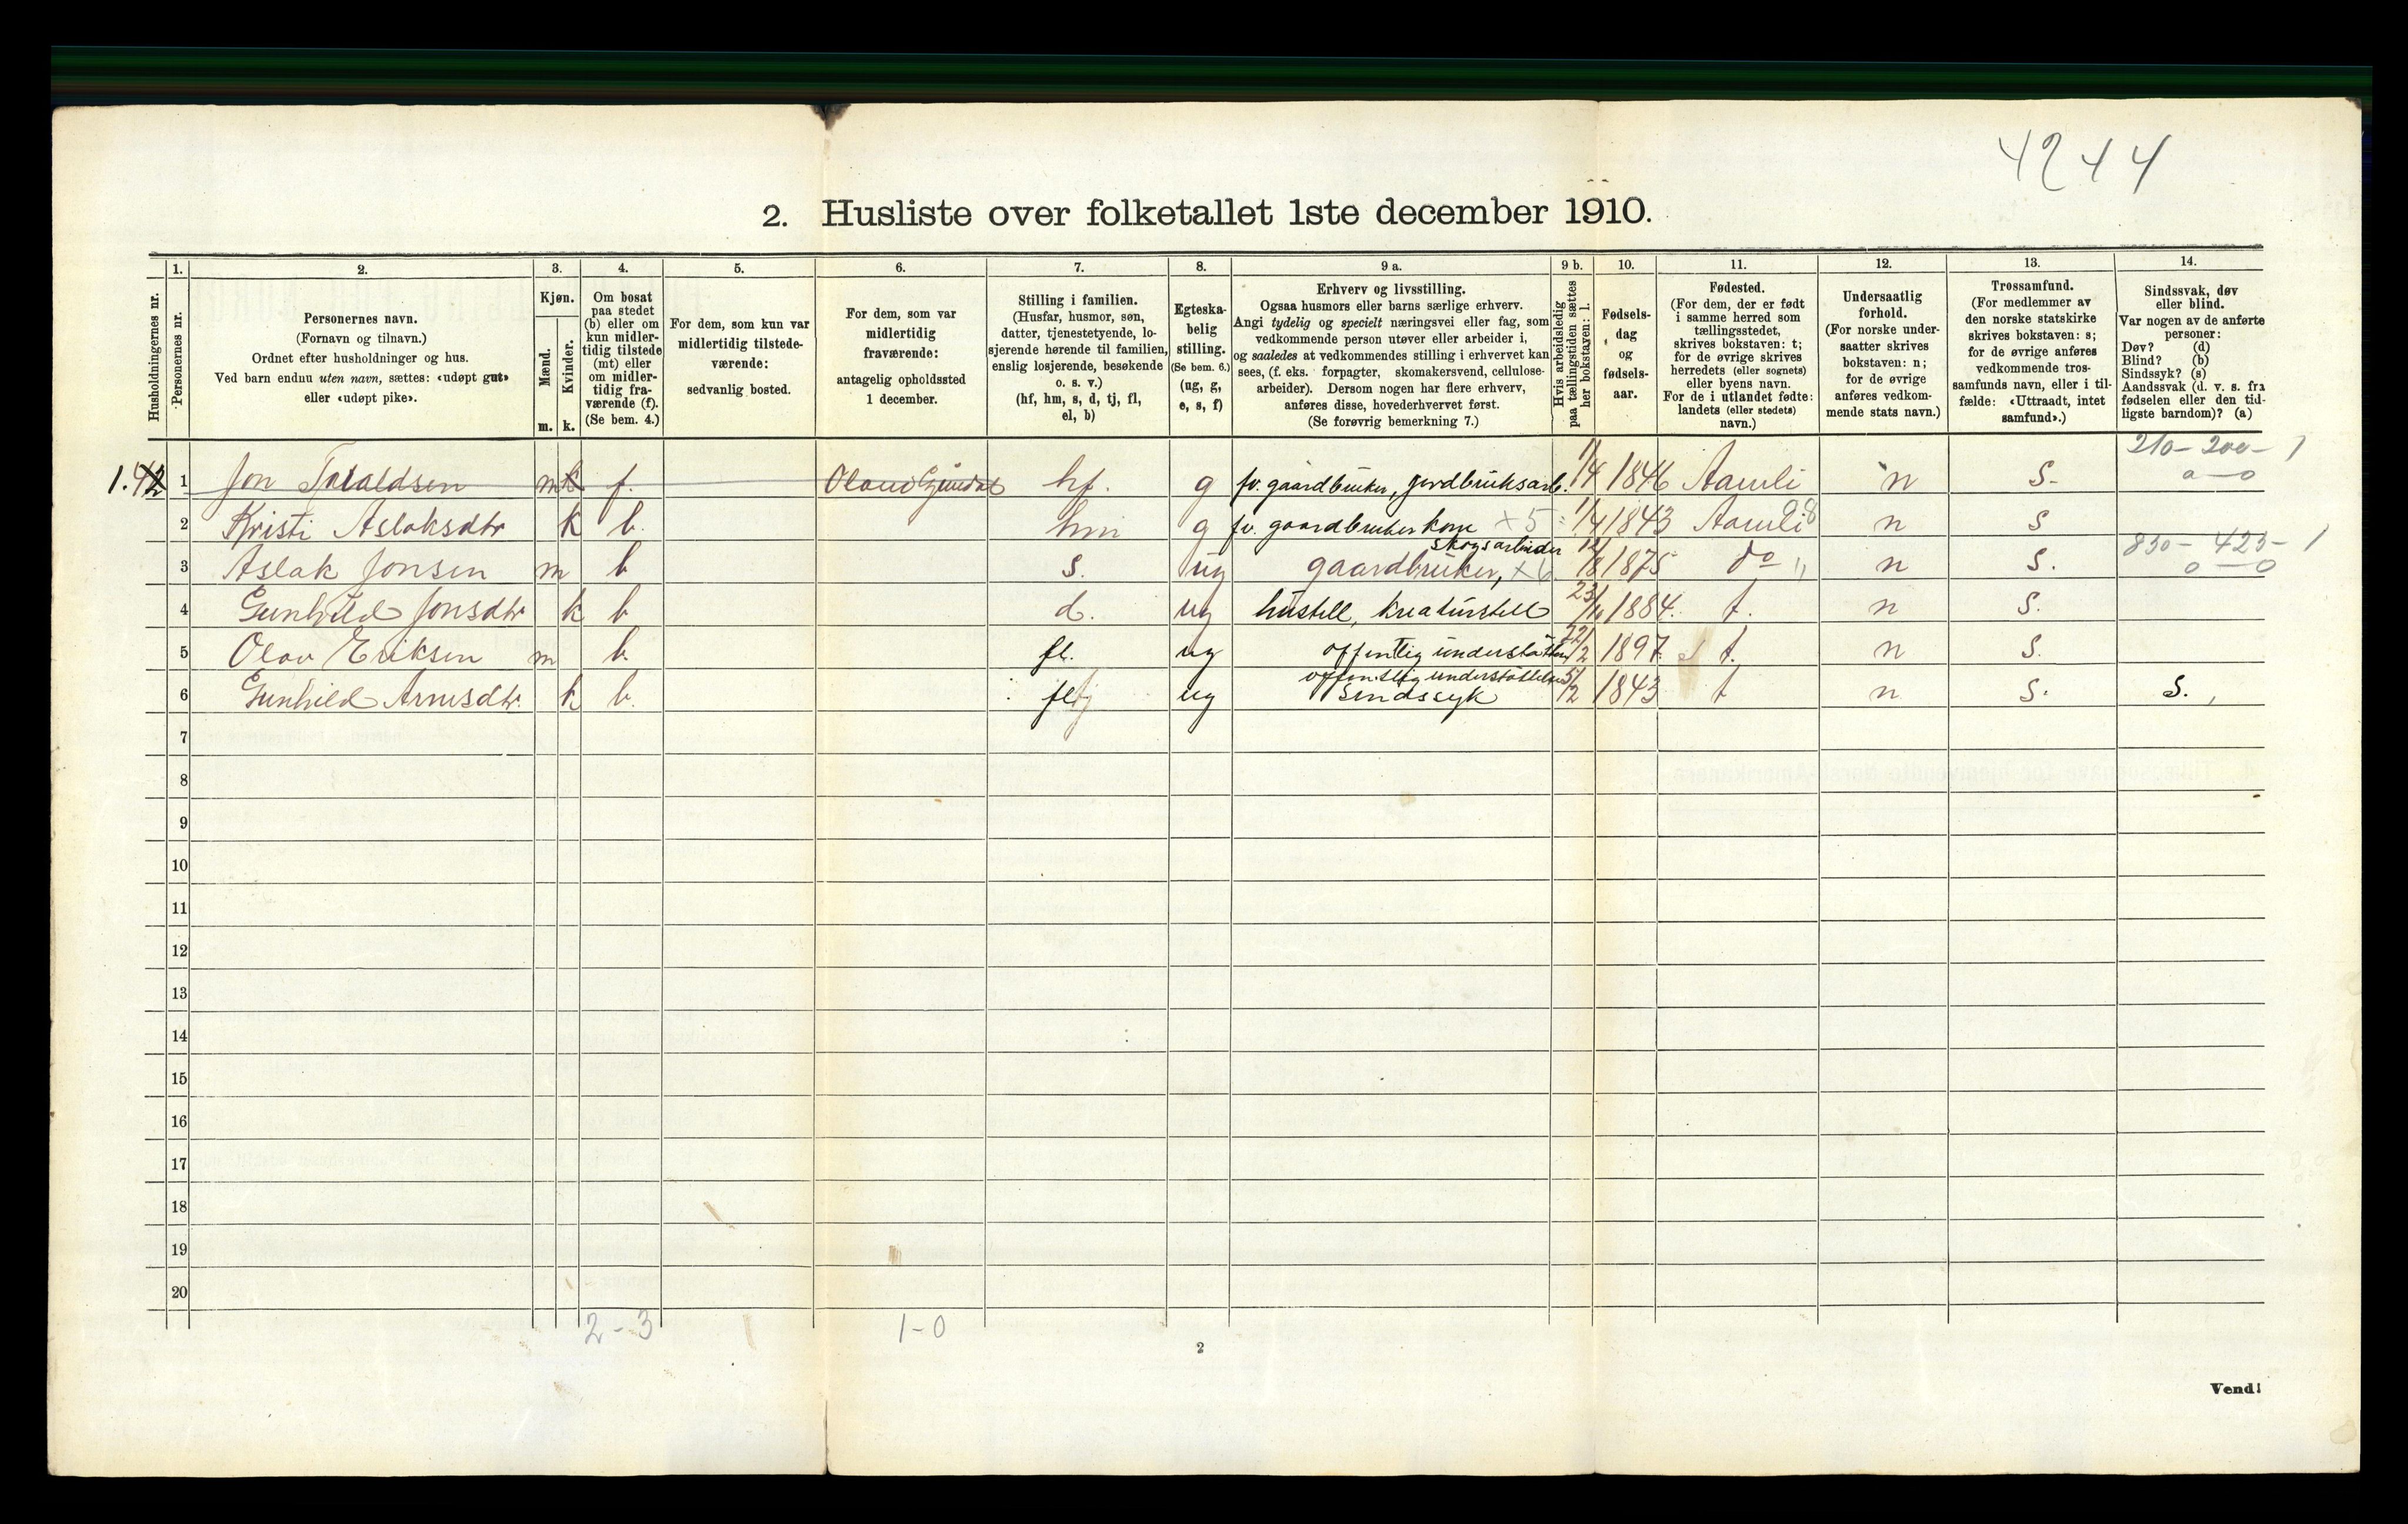 4244
2. Husliste over folketallet 1ste december 1910.
Husholdningernes nr.
1.
Personernes nr.
2.
Personernes navn.
(Fornavn og tilnavn.)
Ordnet efter husholdninger og hus.
Ved barn endnu uten navn, sættes: «udøpt gut»
eller «udøpt pike».
3.
Kjøn.
Mænd.
Kvinder.
m. k.
4.
Om bosat
paa stedet
(b) eller om
kun midler-
tidig tilstede
(mt) eller
om midler-
tidig fra-
værende (f).
(Se bem. 4.)
5.
For dem, som kun var
midlertidig tilstede-
værende:
sedvanlig bosted.
6.
For dem, som var
midlertidig
fraværende:
antagelig opholdssted
1 december.
7.
Stilling i familien.
(Husfar, husmor, søn,
datter, tjenestetyende, lo-
sjerende hørende til familien,
enslig losjerende, besøkende
o. s. v.)
(hf, hm, s, d, tj, fl,
el, b)
8.
Egteska-
belig
stilling.
(Se bem. 6.)
(ug, g,
e, s, f)
9 a.
Erhverv og livsstilling.
Ogsaa husmors eller barns særlige erhverv.
Angi tydelig og specielt næringsvei eller fag, som
vedkommende person utøver eller arbeider i,
og saaledes at vedkommendes stilling i erhvervet kan
sees, (f. eks. forpagter, skomakersvend, cellulose-
arbeider). Dersom nogen har flere erhverv,
anføres disse, hovederhvervet først.
(Se forøvrig bemerkning 7.)
9 b.
Hvis arbeidsledig
paa tællingstiden sættes
her bokstaven: l.
10.
Fødsels-
dag
og
fødsels-
aar.
11.
Fødested.
(For dem, der er født
i samme herred som
tællingsstedet,
skrives bokstaven: t;
for de øvrige skrives
herredets (eller sognets)
eller byens navn.
For de i utlandet fødte:
landets (eller stedets)
navn.)
12.
Undersaatlig
forhold.
(For norske under-
saatter skrives
bokstaven: n;
for de øvrige
anføres vedkom-
mende stats navn.)
13.
Trossamfund.
(For medlemmer av
den norske statskirke
skrives bokstaven: s;
for de øvrige anføres
vedkommende tros-
samfunds navn, eller i til-
fælde: «Uttraadt, intet
samfund».)
14.
Sindssvak, døv
eller blind.
Var nogen av de anførte
personer:
Døv? (d)
Blind? (b)
Sindssyk? (s)
Aandssvak (d. v. s. fra
fødselen eller den tid-
ligste barndom)? (a)
210-200-1
0-0
1 Jon m f. hf. g fv. gaardbruker, jordbruksarb. 1/4 1846 Aamli n S.
2 Kristi Aslaksdtr k b. hm g fv. gaardbrukerkone x5 1/4 1843 Aamli n S
skogsarbeider 830-425-1
3 Aslak Jonsen m b s. ug gaardbruker, x6 12/8 1875 do n S. 0-0
4 Gunhild Jonsdtr k b d. ug hustell, kreaturstell 23/10 1884. t. n S.
5 Olav Eriksen m b. fl. ug offentlig 22/2 1897 t. n S.
offentlig understøttelse
6 Gunhild Arnesdtr. k b. fl ug Sindssyk 5/2 1843 t n S. S.
7
8
9
10
11
12
13
14
15
16
17
18
19
20
2-3 1-0
2
Vend!